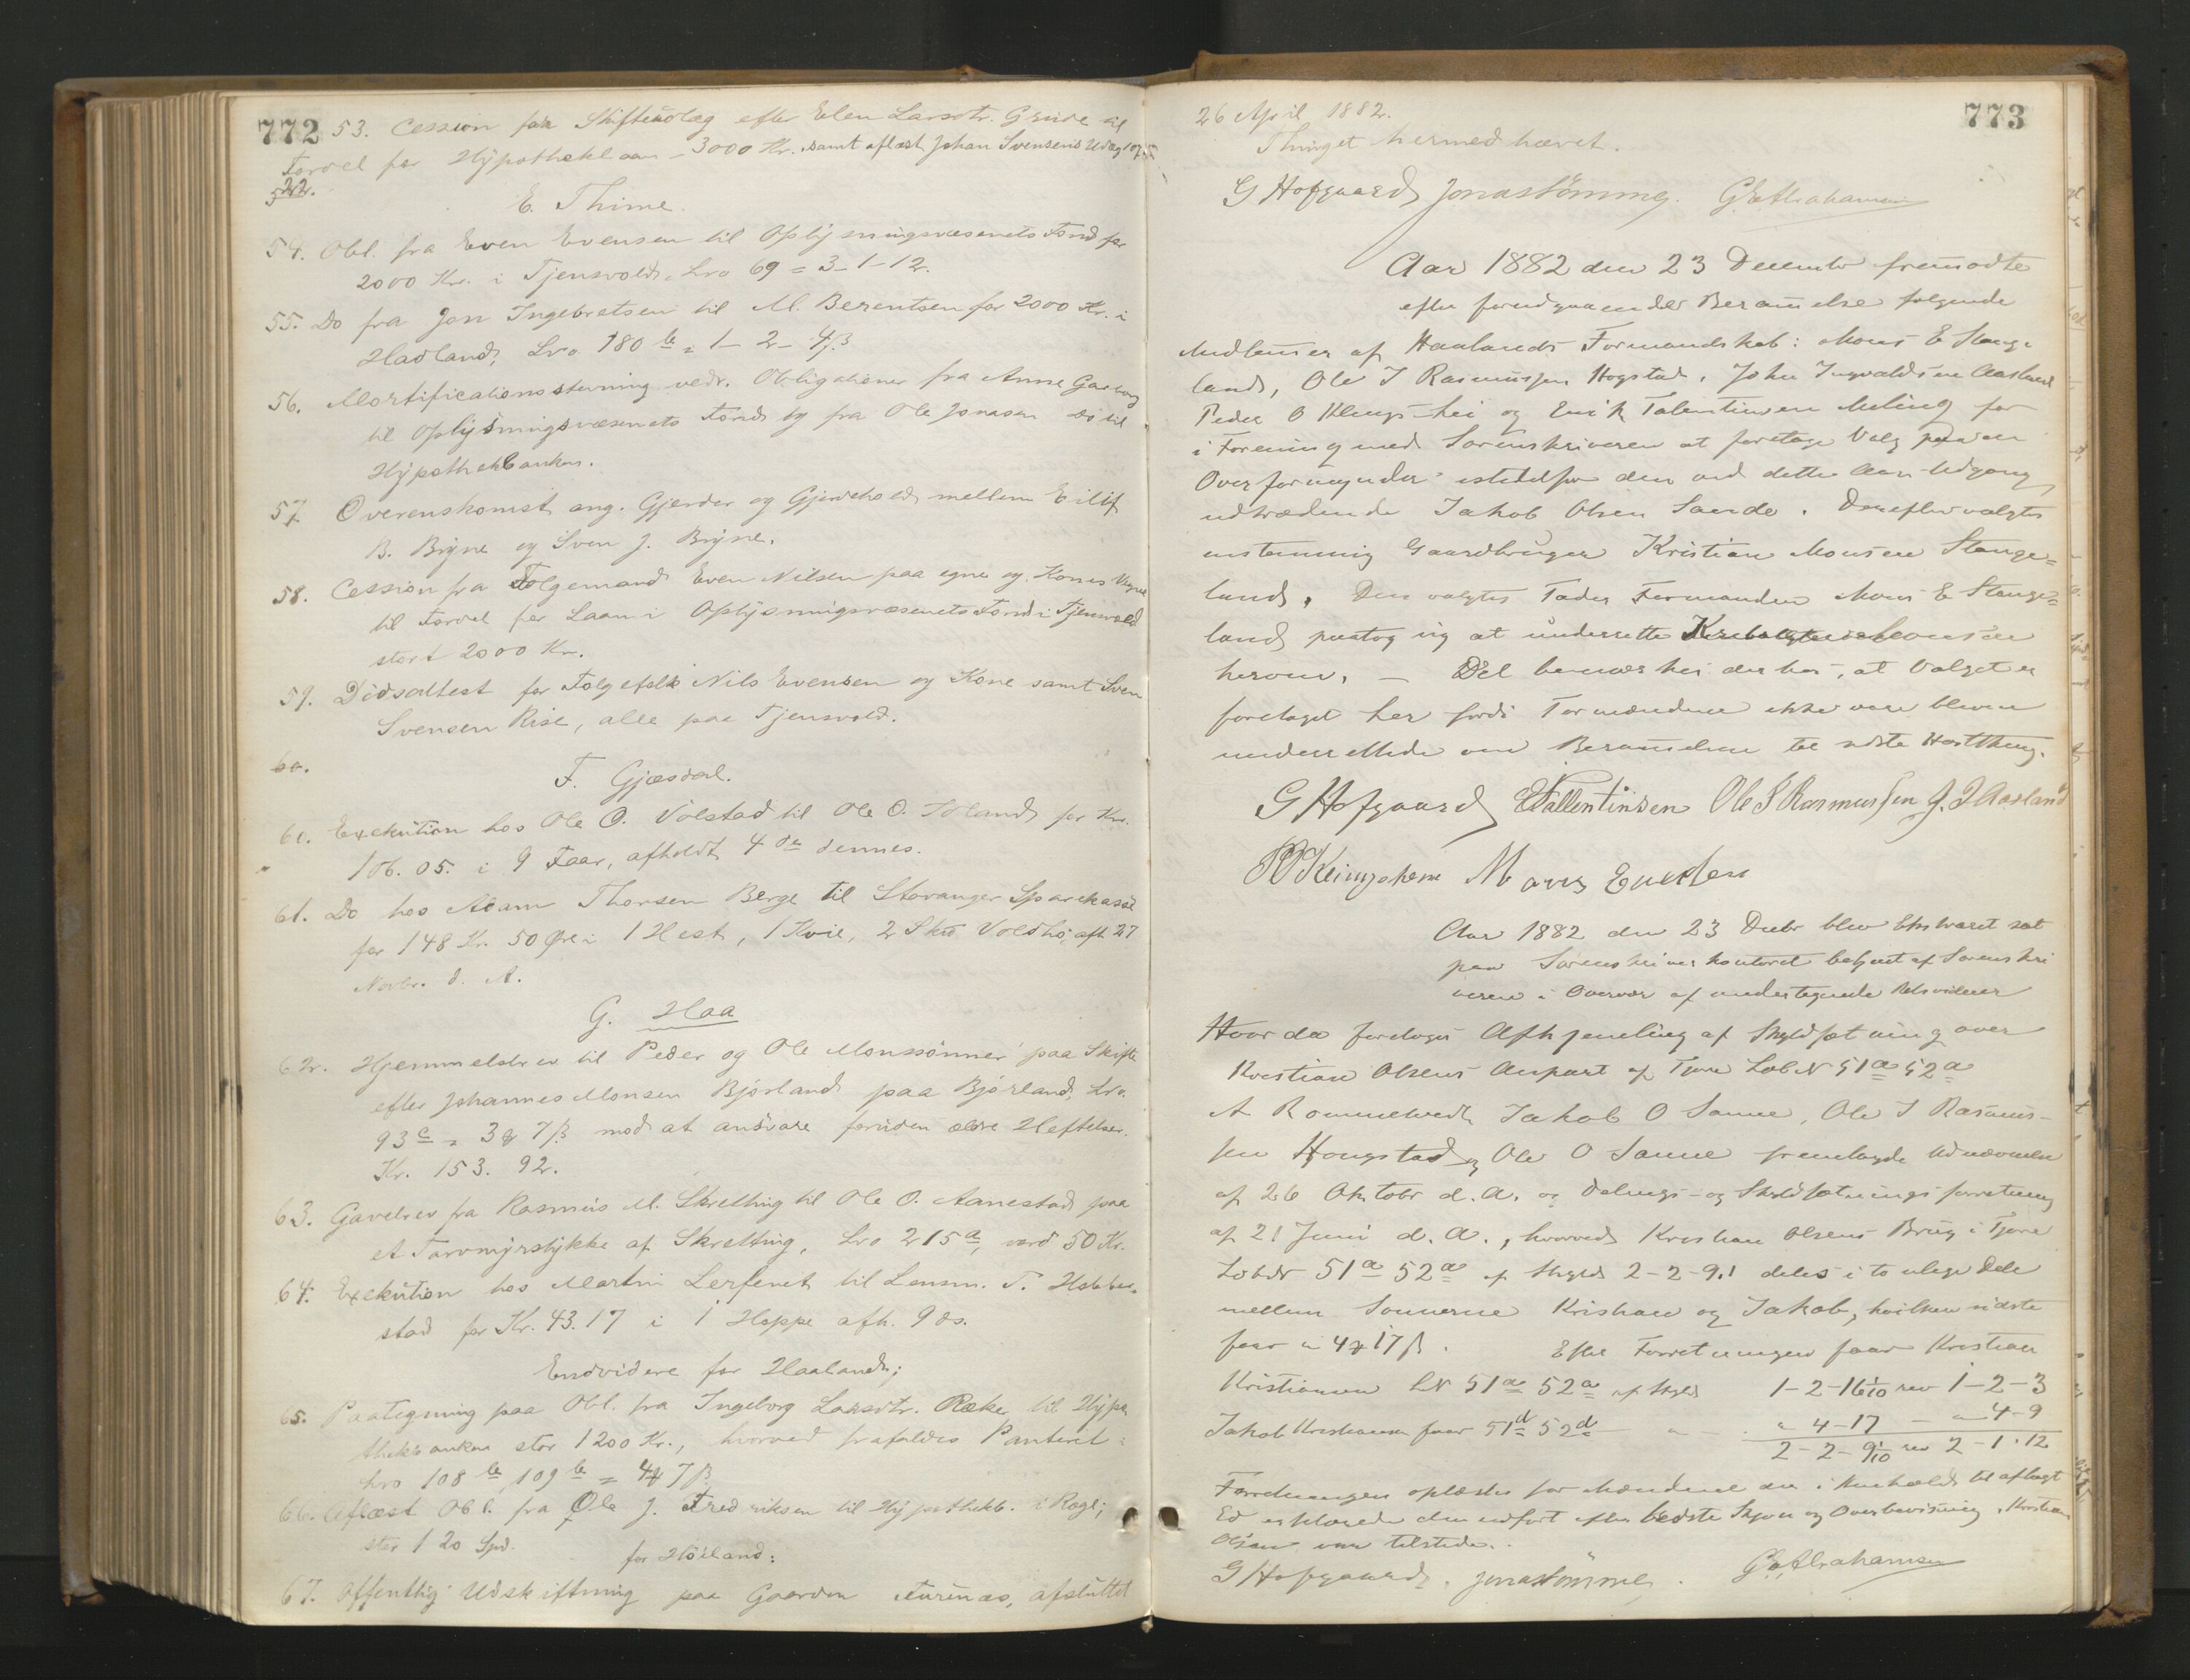 772
53. Cession fra Skifteudlæg efter Elen Larsdtr. Grude til
Fordel for Hypotheklaan 3000 Kr. samt aflæst Johan Svensens Udlæg
E. Thime.
54. Obl. fra Even Evensen til Oplysningsvæsenets Fond for
2000 Kr. i Tjensvold, Lno 69 = 3-1-12.
55. Do fra Jon Ingebretsen til M. Berentsen for 2000 Kr. i
Hadland, Lno 180 b = 1-2-4ß
56. Mortificationsstevning vedr. Obligationer fra Anne Garborg
til Oplysningsvæsenets Fond og fra Ole Jonasen do til
Hypothekbanken.
57. Overenskomst ang. Gjerder og Gjerdehold mellem Eilif
B. Bryne og Sven J. Bryne.
58. Cession fra Folgemand Even Nilsen paa egne og Kones Vegne
til Fordel for Laan i Oplysningsvæsenets Fond i Tjensvold
stort 2000 Kr.
59. Dødsattest for Folgefolk Nils Evensen og Kone samt Sven
Svensen Rise, alle paa Tjensvold.
60.
F. Gjæsdal.
60. Exekution hos Ole O. Volstad til Ole O. for Kr.
106.05. i 9 Faar, afholdt 4de dennes.
61. Do hos Adam Thorsen Berge til Stavanger Sparekasse
for 148 Kr. 50 Øre i 1 Hest, 1 Kvie, 2 Skr Voldhø, afh 27
Novbr. d. A.
G. Haa
62. Hjemmelsbrev til Peder og Ole Monssønner paa Skifte
efter Johannes Monsen Bjorland paa Bjorland, Lno
93c = 3 7ß mod at ansvare foruden ældre Heftelser
Kr. 153.92.
63. Gavebrev fra Rasmus M. Skretting til Ole O. Aanestad paa
et Torvmyrstykke af Skretting, Lno 215a, værd 50 Kr.
64. Exekution hos Martin til Lensm. T. Hobber
stad for Kr. 43.17 i 1 Hoppe afh. 9 ds.
Endvidere for Haaland;
65. Paategning paa Obl. fra Ingeborg Larsdtr. Ræke til Hypo
thekbanken stor 1200 Kr., hvorved frafaldes Panteret
Lno 108 b, 109 b = 4 7ß
66. Aflæst Obl. fra Ole J. Fredriksen til Hypothekb. i Rægl;
stor 120 Spd.
for Höiland:
67. Offentlig Udskiftning paa Gaarden, afsluttet
773
26 April 1882.
Thinget hermed hævet.
G Hofgaard Jonas Tömme. G E Abrahamsen
Aar 1882 den 23 December fremmødte
efter forudgaaende Berammelse følgende
Medlemmer af Haalands Formandskab: Mons E Stange
land, Ole T Rasmussen Hogstad, John Ingvaldsen Aasland
Peder O og Erik Valentinsen Meling for
i Forening med Sorenskriveren at foretage Valg paa en
Overformynder istedetfor den ved dette Aars Udgang
udtrædende Jakob Olsen Sande. Derefter valgtes
enstemmig Gaardbruger Kristian Monsen Stange=
land. Den valgtes Fader Formanden Mons E Stange=
land paatog sig at underrette Monsen
herom. — Det bemærkes derhos, at Valget er
foretaget her fordi Formændene ikke vare bleven
underrettede om Berammelsen til sidste Høstthing.
G Hofgaard E Vallentinsen Ole T Rasmussen J. I Aasland
Mons Evertsen
Aar 1882 den 23 Decbr blev Extraret sat
paa Sorenskriverkontoret betjent af Sorenskri
veren i Overvær af undertegnede Retsvidner
Hvorda foretoges Afhjemling af Skyldsætning over
Kristian Olsens Anpart af Tjore Løb N 51a 52a
A Rommetvedt, Jakob O Sande, Ole T Rasmus-
sen Hougstad og Ole O Sande fremlagde Udnævnelse
af 26 Oktobr d. A. og Delings- og Skyldsætningsforretning
af 21 Juni d. A., hvorved Kristian Olsens Brug i Tjore
LøbN 51a 52a af Skyld 2-2-9.1 deles i to ulige Dele
mellem Sønnerne Kristian og Jakob, hvilken sidste
faar 4 17ß. Efter Forretningen faar Kristian
Kristiansen LN 51a 52a af Skyld 1-2-16 1/10 rev 1-2-3
Jakob Kristiansen faar 51d 52d " " 4-17 — " 4-9
2-2-9 1/10 rev 2-1-12
Forretningen oplæstes for Mændene der i Henhold til aflagt
Ed erklærede den udført efter bedste Skjøn og Overbevisning. Kristian
Olsen var tilstede.
G Hofgaard. Jonas Tömme. G E Abrahamsen